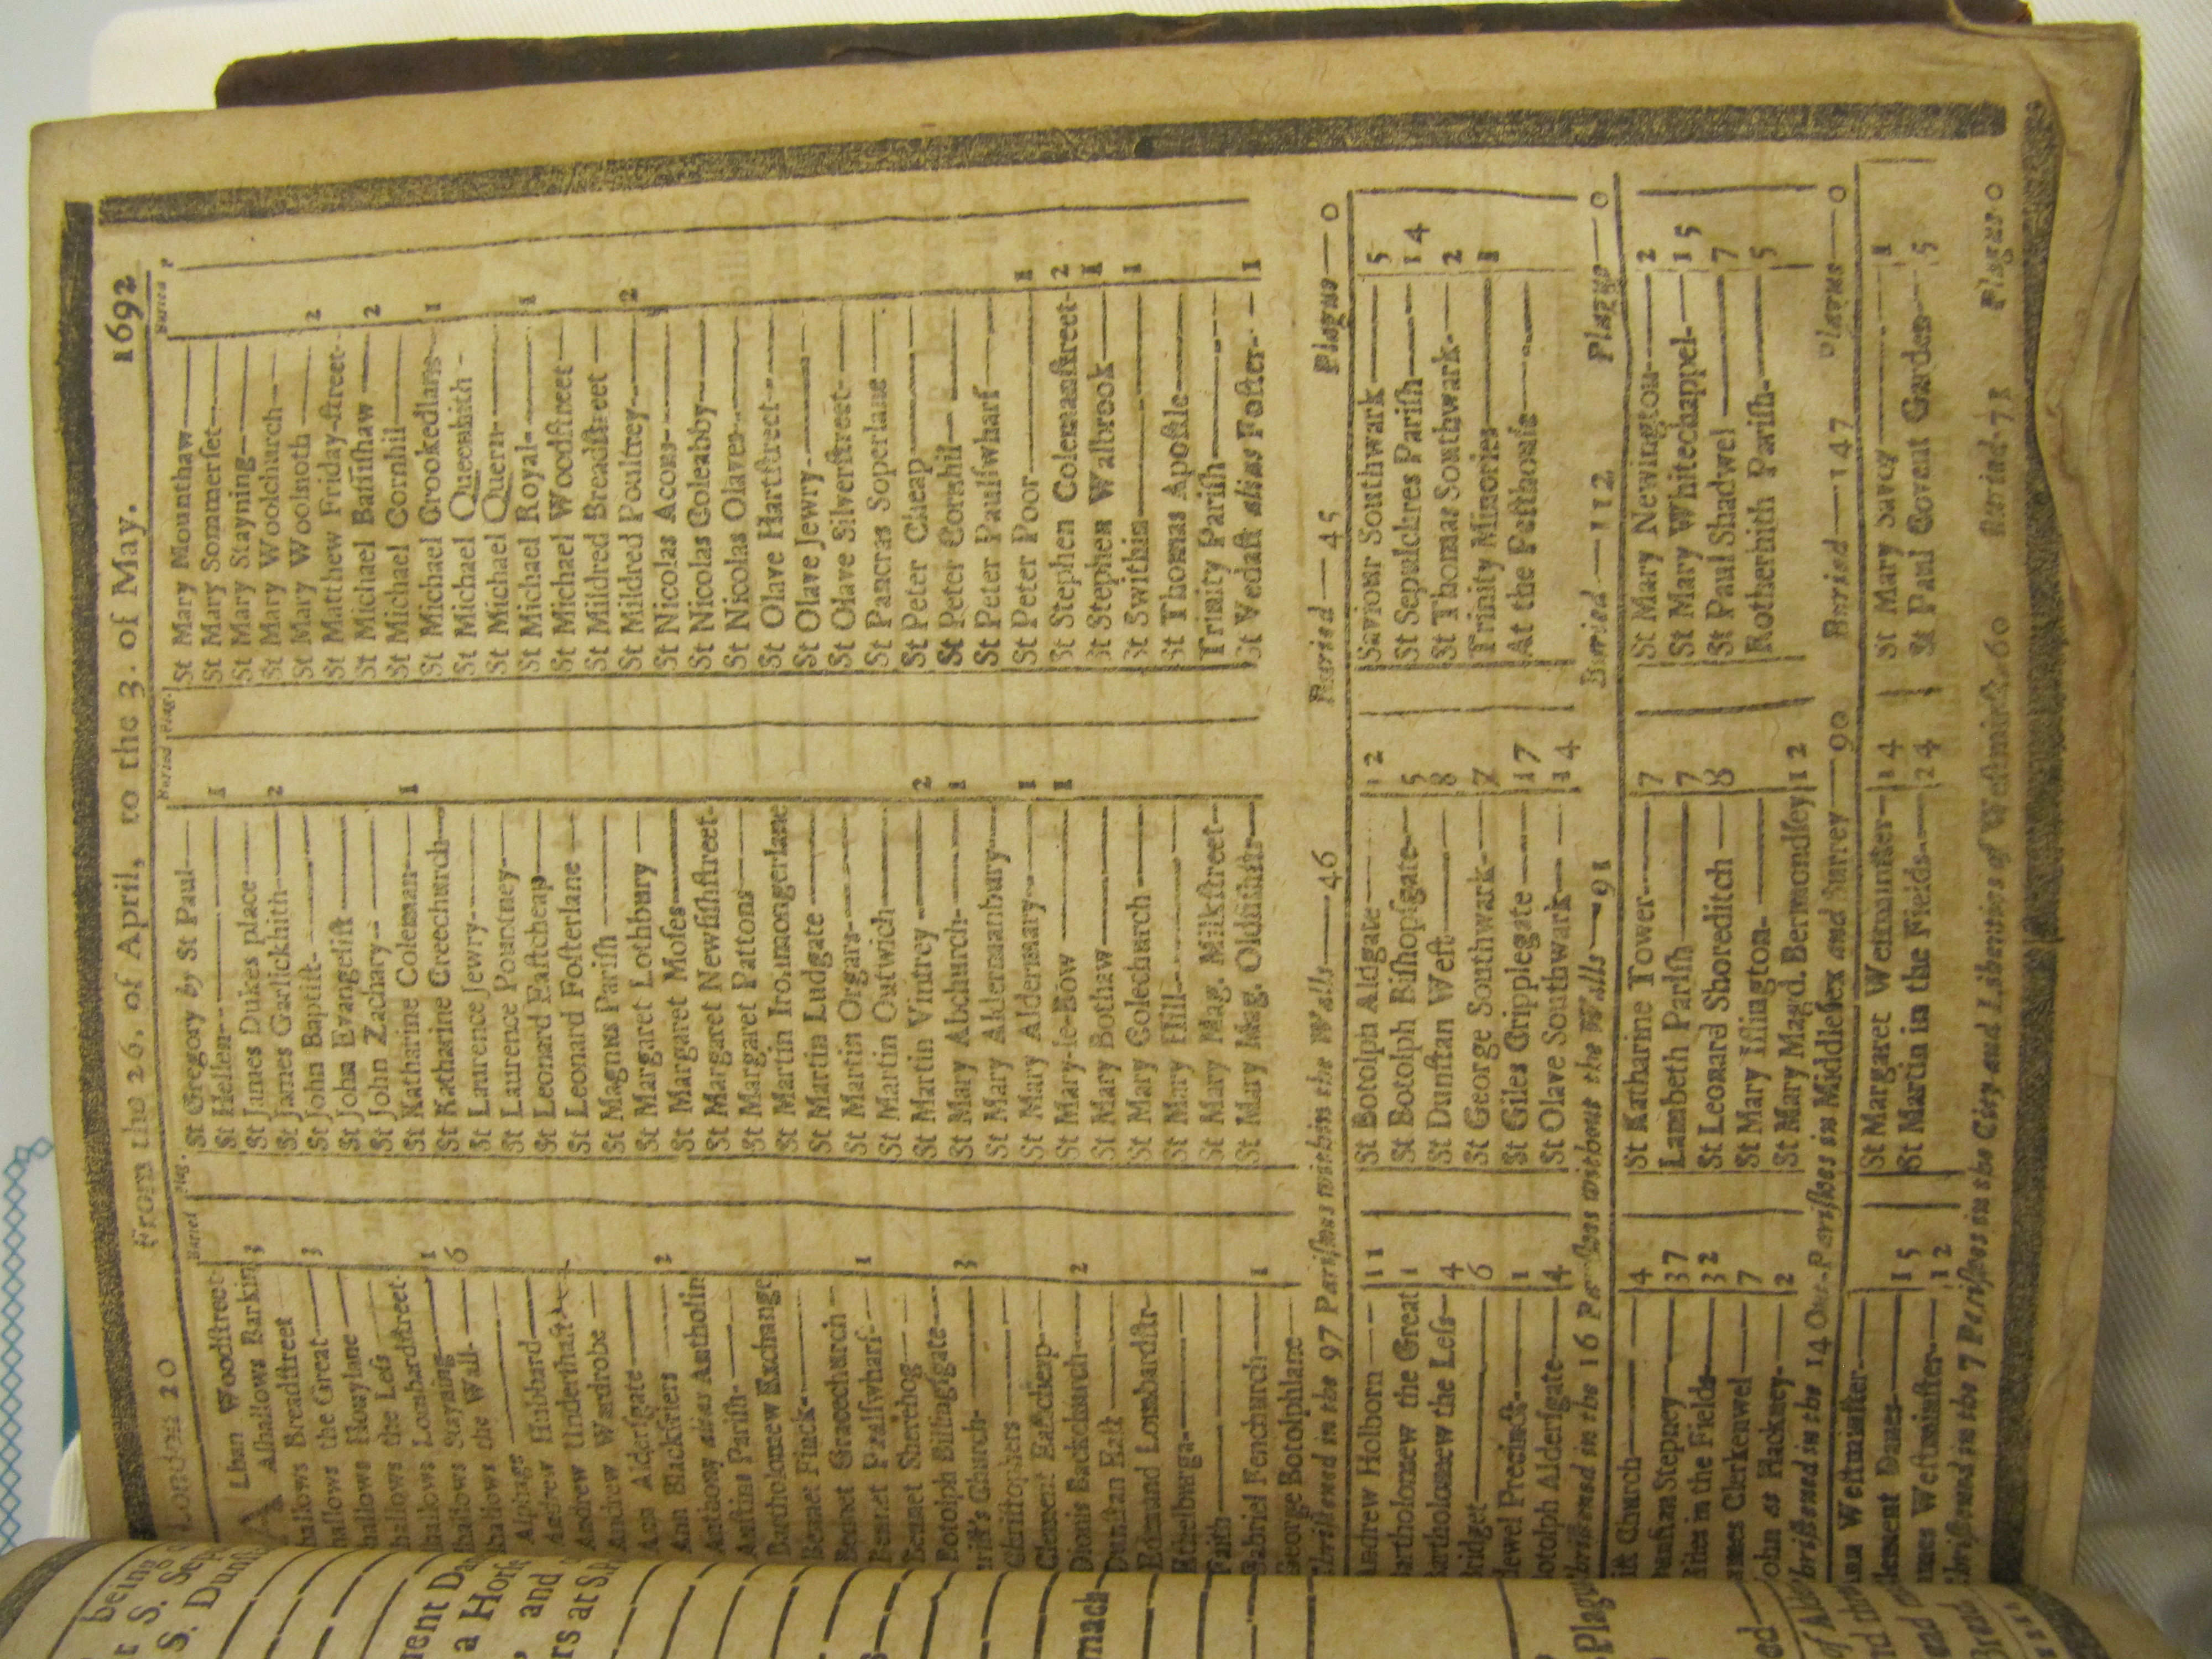 London 20 From the 26. of April, to the 3. of May. 1692
Buried Plag.
ALban Woodstreet
Alhallows Barkin 3
hallows Breadstreet
hallows the Great 3
hallows Honylane
hallows the Less
hallows Lombardstreet 1
hallows Stayning 6
hallows the Wall
Alphage
Andrew Hubbard
Andrew Undershaft
Andrew Wardrobe
Ann Aldersgate
Ann Blackfriers 2
Anthony alias Antholin
Austins Parish
Bartholomew Exchange
Bennet Finck
Bennet Gracechurch
Bennet Paulswharf 1
Bennet Sherehog
Botolph Billingsgate
Christ's Church 3
Christophers
Clement Eastcheap
Dionis Backchurch 2
Dunstan East
Edmund Lombardstr
Ethelburga
Faith
Gabriel Fenchurch 1
George Botolphlane
Buried Plag.
St Gregory by St Paul
St Hellen 1
St James Dukes place
St James Garlickhith 2
St John Baptist
St John Evangelist
St John Zachary
St Katharine Coleman 1
St Katharine Creechurch
St Laurence Jewry
St Laurence Pountney
St Leonard Eastcheap
St Leonard Fosterlane
St Magnus Parish
St Margaret Lothbury
St Margaret Moses
St Margaret Newfishstreet
St Margaret Pattons
St Martin Ironmongerlane
St Martin Ludgate
St Martin Orgars
St Martin Outwich
St Martin Vintrey 2
St Mary Abchurch 1
St Mary Aldermanbury
St Mary Aldermary 1
St Mary-le-Bow 1
St Mary Bothaw
St Mary Colechurch
St Mary Hill
St Mary Mag. Milkstreet
St Mary Mag. Oldfishstr
Buried P
St Mary Mounthaw
St Mary Sommerset
St Mary Stayning
St Mary Woolchurch
St Mary Woolnoth 2
St Matthew Friday-street
St Michael Bassishaw 2
St Michael Cornhil
St Michael Crookedlane 1
St Michael Queenhith
St Michael Quern
St Michael Royal 1
St Michael Woodstreet
St Mildred Breadstreet
St Mildred Poultrey 2
St Nicolas Acons
St Nicolas Coleabby
St Nicolas Olaves
St Olave Hartstreet
St Olave Jewry
St Olave Silverstreet
St Pancras Soperlane
St Peter Cheap
St Peter Cornhil
St Peter Paulswharf
St Peter Poor 1
St Stephen Colemanstreet 2
St Stephen Walbrook 1
St Swithin 1
St Thomas Apostle
Trinity Parish
St Vedast alias Foster 1
Christened in the 97 Parishes within the Walls—46 Buried—45 Plague—0
Andrew Holborn 11
Bartholomew the Great 1
Bartholomew the Less 4
Bridget 6
dewel Precinct 1
otolph Aldersgate 4
St Botolph Aldgate 12
St Botolph Bishopsgate 5
St Dunstan West 8
St George Southwark 7
St Giles Cripplegate 17
St Olave Southwark 14
Saviour Southwark 5
St Sepulchres Parish 14
St Thomas Southwark 2
Trinity Minories 1
At the Pesthouse
Christened in the 16 Parishes without the Walls—91 Buried—112 Plague—0
ist Church 4
unstan Stepney 37
Giles in the Fields 32
ames Clerkenwel 7
John at Hackney 2
St Katharine Tower 7
Lambeth Parish 7
St Leonard Shoreditch 8
St Mary Islington
St Mary Magd. Bermondsey 12
St Mary Newington 2
St Mary Whitechappel 15
St Paul Shadwel 7
Rotherhith Parish 5
Christened in the 14 Out-Parishes in Middlesex and Surrey—90 Buried—147 Plague—0
Ann Westminster
Clement Danes 15
ames Westminster 12
St Margaret Westminster 14
St Martin in the Fields 24
St Mary Savoy 1
St Paul Covent Garden 5
Christened in the 7 Parishes in the City and Liberties of Westminst. 60 Buried 71 Plague 0
being
S. Sep
S. Dunst
ment Da
a Horse
and
rs at S.
mach
Plagu
ed